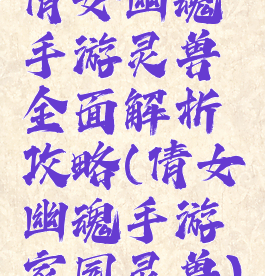 倩女幽魂
手游灵兽
全面解析
攻略(倩女
幽魂手游
家园灵兽)